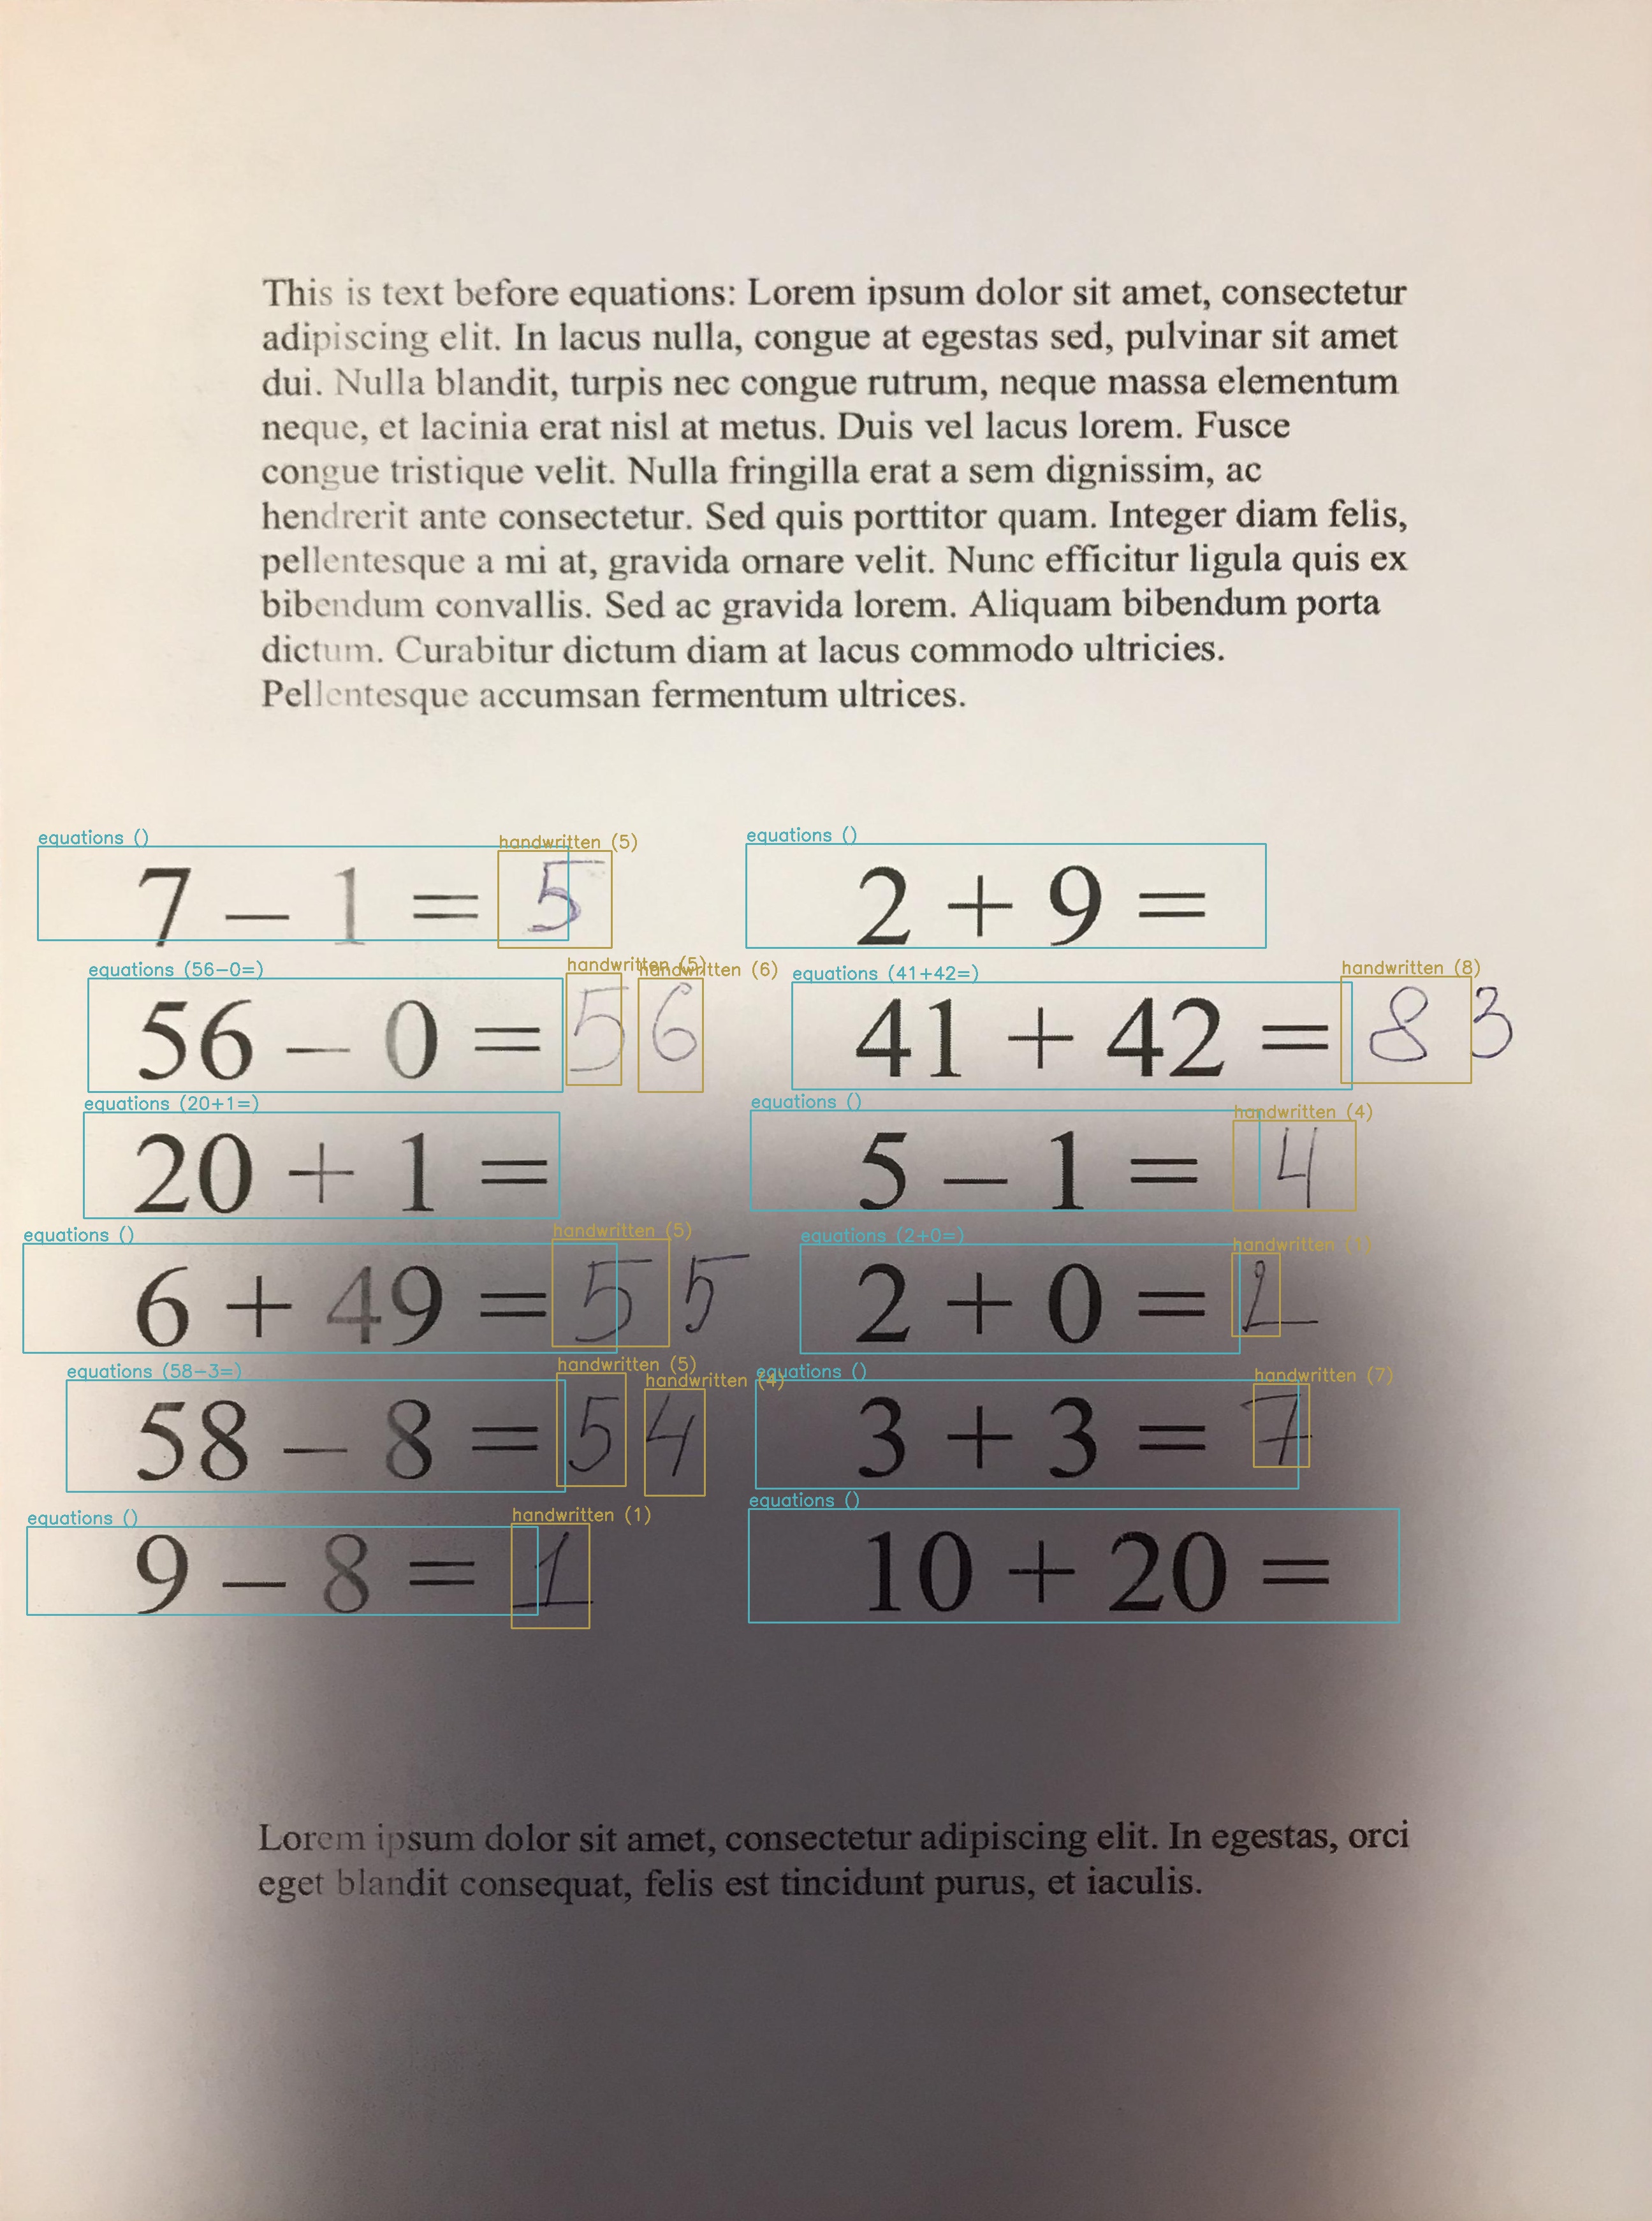 This is text before equations: Lorem ipsum dolor sit amet, consectetur
adipiscing elit. In lacus nulla, congue at egestas sed, pulvinar sit amet
dui. Nulla blandit, turpis nec congue rutrum, neque massa elementum
neque, et lacinia erat nisl at metus. Duis vel lacus lorem. Fusce
congue tristique velit. Nulla fringilla erat a sem dignissim, ac
hendrerit ante consectetur. Sed quis porttitor quam. Integer diam felis,
pellentesque a mi at, gravida ornare velit. Nunc efficitur ligula quis ex
bibendum convallis. Sed ac gravida lorem. Aliquam bibendum porta
dictum. Curabitur dictum diam at lacus commodo ultricies.
Pellentesque accumsan fermentum ultrices.
equations () handwritten (5) equations ()
7 – 1 = 5 2 + 9 =
equations (56-0=) handwritten (5) handwritten (6) equations (41+42=) handwritten (8)
56 – 0 = 56 41 + 42 = 83
equations (20+1=) equations () handwritten (4)
20 + 1 = 5 – 1 = 4
equations () handwritten (5) equations (2+0=) handwritten (1)
6 + 49 = 55 2 + 0 = 2
equations (58-3=) handwritten (5) handwritten (4) equations () handwritten (7)
58 – 8 = 54 3 + 3 = 7
equations () handwritten (1) equations ()
9 – 8 = 1 10 + 20 =
Lorem ipsum dolor sit amet, consectetur adipiscing elit. In egestas, orci
eget blandit consequat, felis est tincidunt purus, et iaculis.